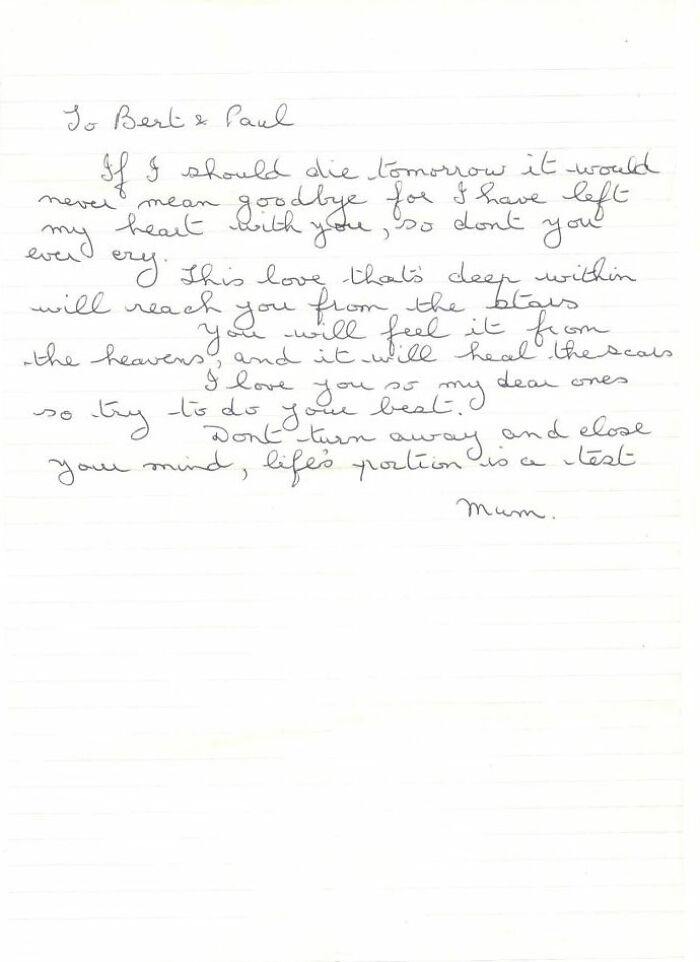 To Bert & Paul
If I should die tomorrow it would
never mean goodbye for I have left
my heart with you, so dont you
ever cry.
This love that's deep within
will reach you from the stars
You will feel it from
the heavens, and it will heal the scars
I love you so my dear ones
so try to do your best.
Dont turn away and close
your mind, life's portion is a test
Mum.